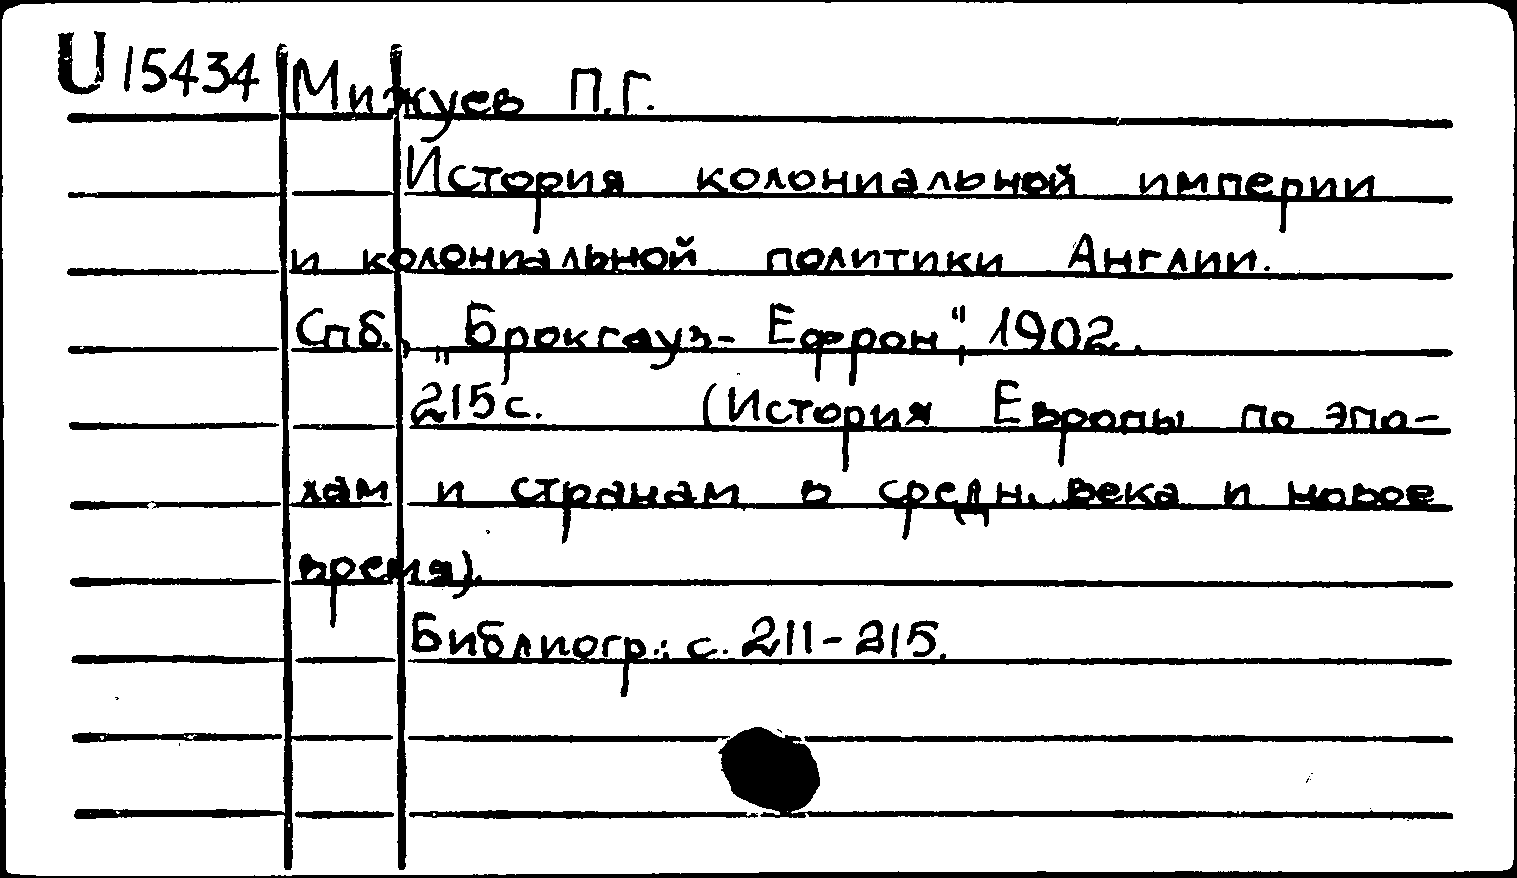 U 15434 Мижуев П.Г.
История колониальной империи
и колониальной политики Англии.
Спб., „Брокгауз-Ефрон", 1902.
215 с. (История Европы по эпо-
хам и странам в средн. века и новое
время).
Библиогр.: с. 211-215.